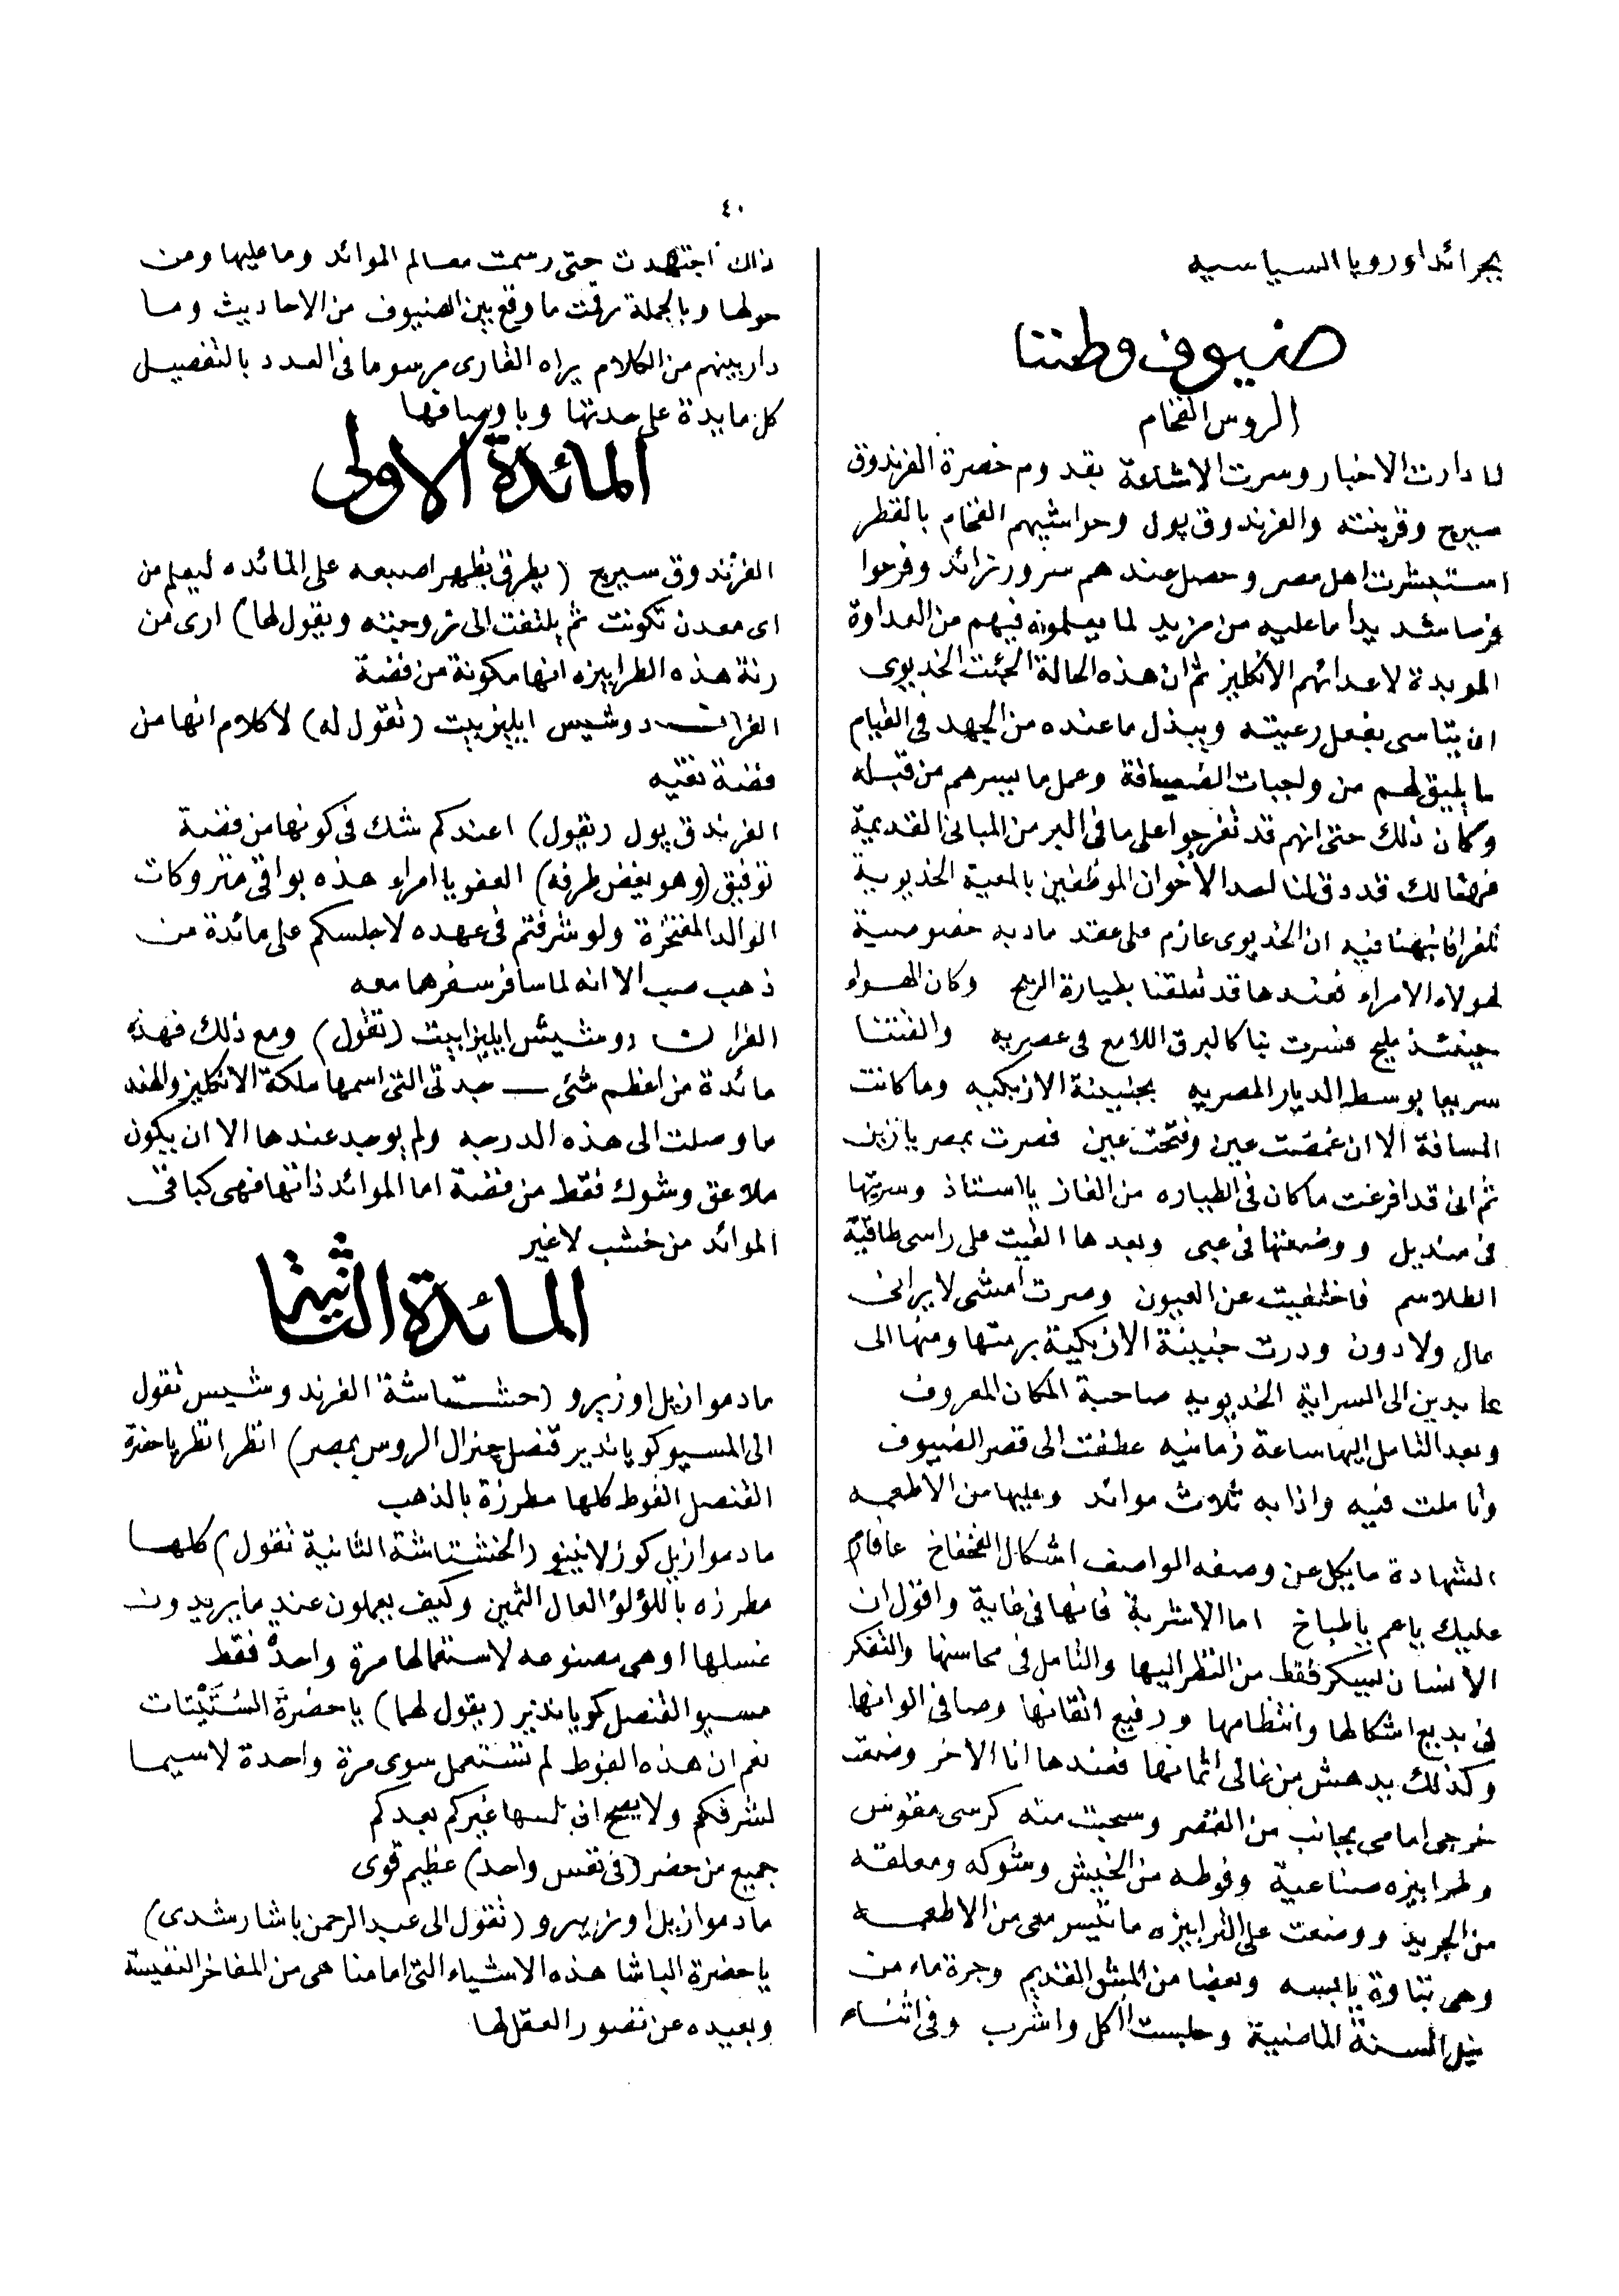 ٤٠
بجرائد اوروپا السياسيه
ضيوف وطننا
الروس الفخام
لما دارت الاخبار وسرت الاشاعة بقدوم حضرة الغرندوق
سيرج وقرينته والغرندوق پول وحواشيهم الفخام بالقطر
استبشرت اهل مصر وحصل عندهم سرور زائد وفرحوا
فرحا شديدا ما عليه من مزيد لما يعلمونه فيهم من العداوة
المويدة لاعدائهم الانكليز ثم ان هذه الحالة الجئت الخديوى
ان يتاسى بفعل رعيته ويبذل ما عنده من الجهد فى القيام
بما يليق لهم من واجبات الضيافة وعمل ما يسرهم من قبله
وكان ذلك حتى انهم قد تفرجوا على ما فى البر من المبانى القديمة
فهنالك قد دق لنا احد الاخوان الموظفين بالمعية الخديوية
تلغرافا نبهنا فيه ان الخديوى عازم على عقد مادبه خصوصية
لهولاء الامراء فعندها قد تعلقنا بطيارة الريح وكان الهواء
حينئذ مليح فسرت بنا كالبرق اللامع فى عصريه والقتنا
سريعا بوسط الديار المصريه بجنينة الازبكيه وما كانت
المسافة الا ان غمضت عين وفتحت عين فصرت بمصر يا زين
ثم انى قد افرغت ما كان فى الطياره من الغاز يا استاذ وسريتها
فى منديل ووضعتها فى عبى وبعدها القيت على راسى طاقية
الطلاسم فاختفيت عن العيون وصرت امشى لا يرانى
عال ولا دون ودرت جنينة الازبكية برمتها ومنها الى
عابدين الى السراية الخديويه صاحبة المكان المعروف
وبعد التامل اليها ساعة زمانيه عطفت الى قصر الضيوف
وتاملت فيه واذا به ثلاث موائد وعليها من الاطعمه
الشهادة ما يكل عن وصفه الواصف اشكال الفخفاخ عافارم
عليك يا عم يا طباخ اما الاشربة فانها فى غاية واقول ان
الانسان ليسكر فقط من النظر اليها والتامل فى محاسنها والتفكر
فى بديع اشكالها وانتظامها ورفيع اتقانها وصافى الوانها
وكذلك يدهش من غالى اثمانها فعندها انا الاخر وضعت
خرجى امامى بجانب من القصر وسحبت منه كرسى مقوس
وطرابيزه صناعية وفوطه من الخيش وشوكه ومعلقه
من الجريد ووضعت على الترابيزه ما تيسر معى من الاطعمه
وهى بتاوة يابسه وبعضا من المش القديم وجرة ماء من
نيل السنة الماضية وجلست أاكل واشرب وفى اثناء
ذلك اجتهدت حتى رسمت معالم الموائد وما عليها ومن
حولها وبالجملة رقمت ما وقع بين الضيوف من الاحاديث وما
دار بينهم من الكلام يراه القارى مرسوما فى العدد بالتفصيل
كل مايدة على حدتها وباوصافها
المائدة الاولى
الغرندوق سيرج (يطرق بظهر اصبعه على المائده ليعلم من
اى معدن تكونت ثم يلتفت الى زوجته ويقول لها) ارى من
رنة هذه الطرابيزه انها مكونة من فضة
الغرانـــد دوشيس ايليزبيت (تقول له) لا كلام انها من
فضة نقيه
الغرندق پول (يقول) اعندكم شك فى كونها من فضة
توفيق (وهو يغض طرفه) العفو يا امراء هذه بواقى متروكات
الوالد المفتخرة ولو شرفتم فى عهده لاجلسكم على مائدة من
ذهب صب الا انه لما سافر سفرها معه
الغراند دوشيش ايليزابيت (تقول) ومع ذلك فهذه
مائدة من اعظم شئى ــ جدتى التى اسمها ملكة الانكليز والهند
ما وصلت الى هذه الدرجه ولم يوجد عندها الا ان يكون
ملاعق وشوك فقط من فضة اما الموائد ذاتها فهى كباقى
الموائد من خشب لا غير
المائدة الثانية
مادموازيل اوزيرو (خشتاشة الغرند وشيس تقول
الى المسيو كوياندير قنصل چنرال الروس بمصر) انظر انظر يا حضرة
القنصل الفوط كلها مطرزة بالذهب
مادموازيل كوزلانينو (الخشتاشة الثانية تقول) كلهــا
مطرزه باللؤلؤ العال الثمين وكيف يعملون عندما يريدون
غسلها او هى مصنوعه لاستعمالها مرة واحدة فقط
مسيو القنصل كوياندير (يقول لهما) يا حضرَة السُتَيْتات
نعم ان هذه الفوط لم تستعمل سوى مرة واحدة لاسيما
لشرفكم ولا يصح ان يلمسها غيركم بعدكم
جميع من حضر (فى نفس واحد) عظيم قوى
مادموازيل اوزيرو (تقول الى عبد الرحمن باشا رشدى)
يا حضرة الباشا هذه الاشياء التى امامنا هى من المفاخر النفيسة
وبعيده عن تصور العقل لها